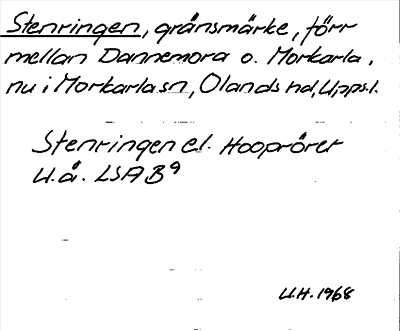 Stenringen, gränsmärke, förr
mellan Dannemora o. Morkarla,
nu i Morkarla sn, Olands hd, Uppsl.
Stenringen el. Hoopröret
U.å. LSA B9
U.H. 1968